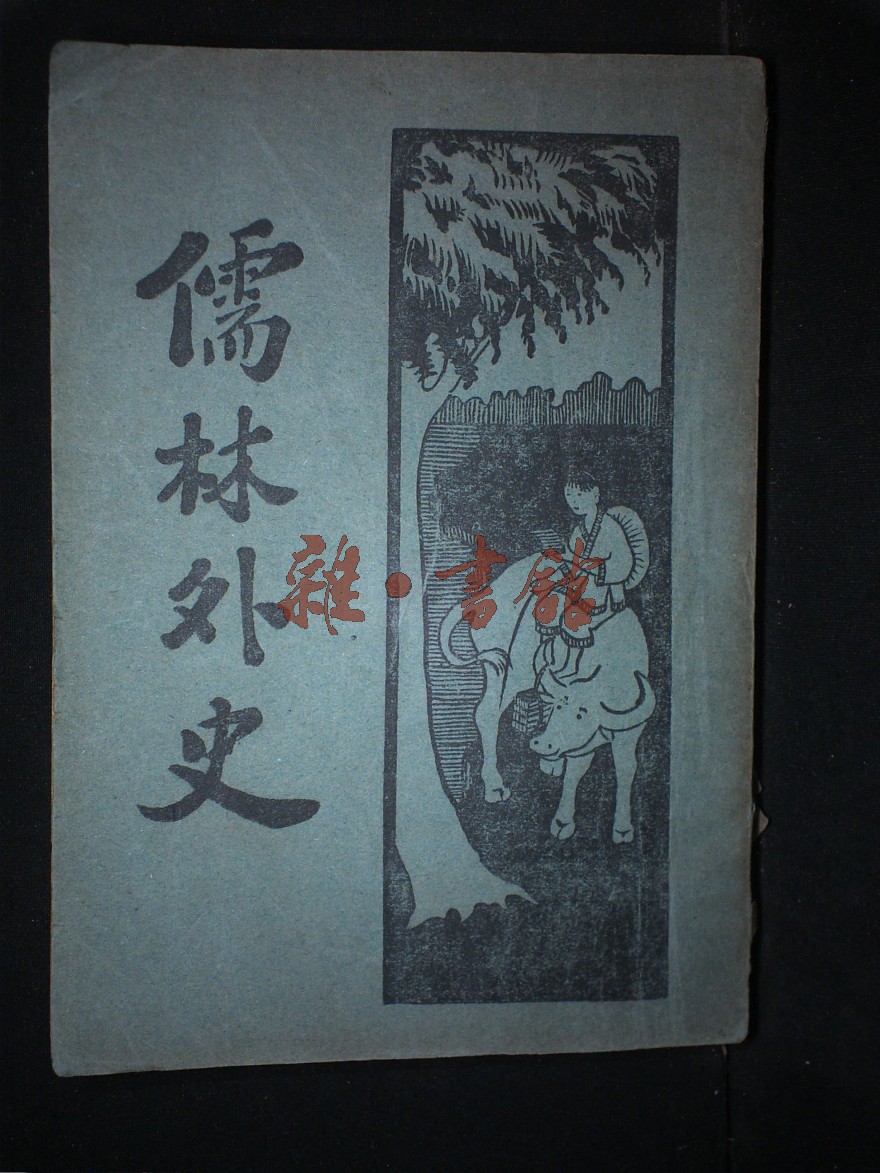 儒林外史
雜·書館